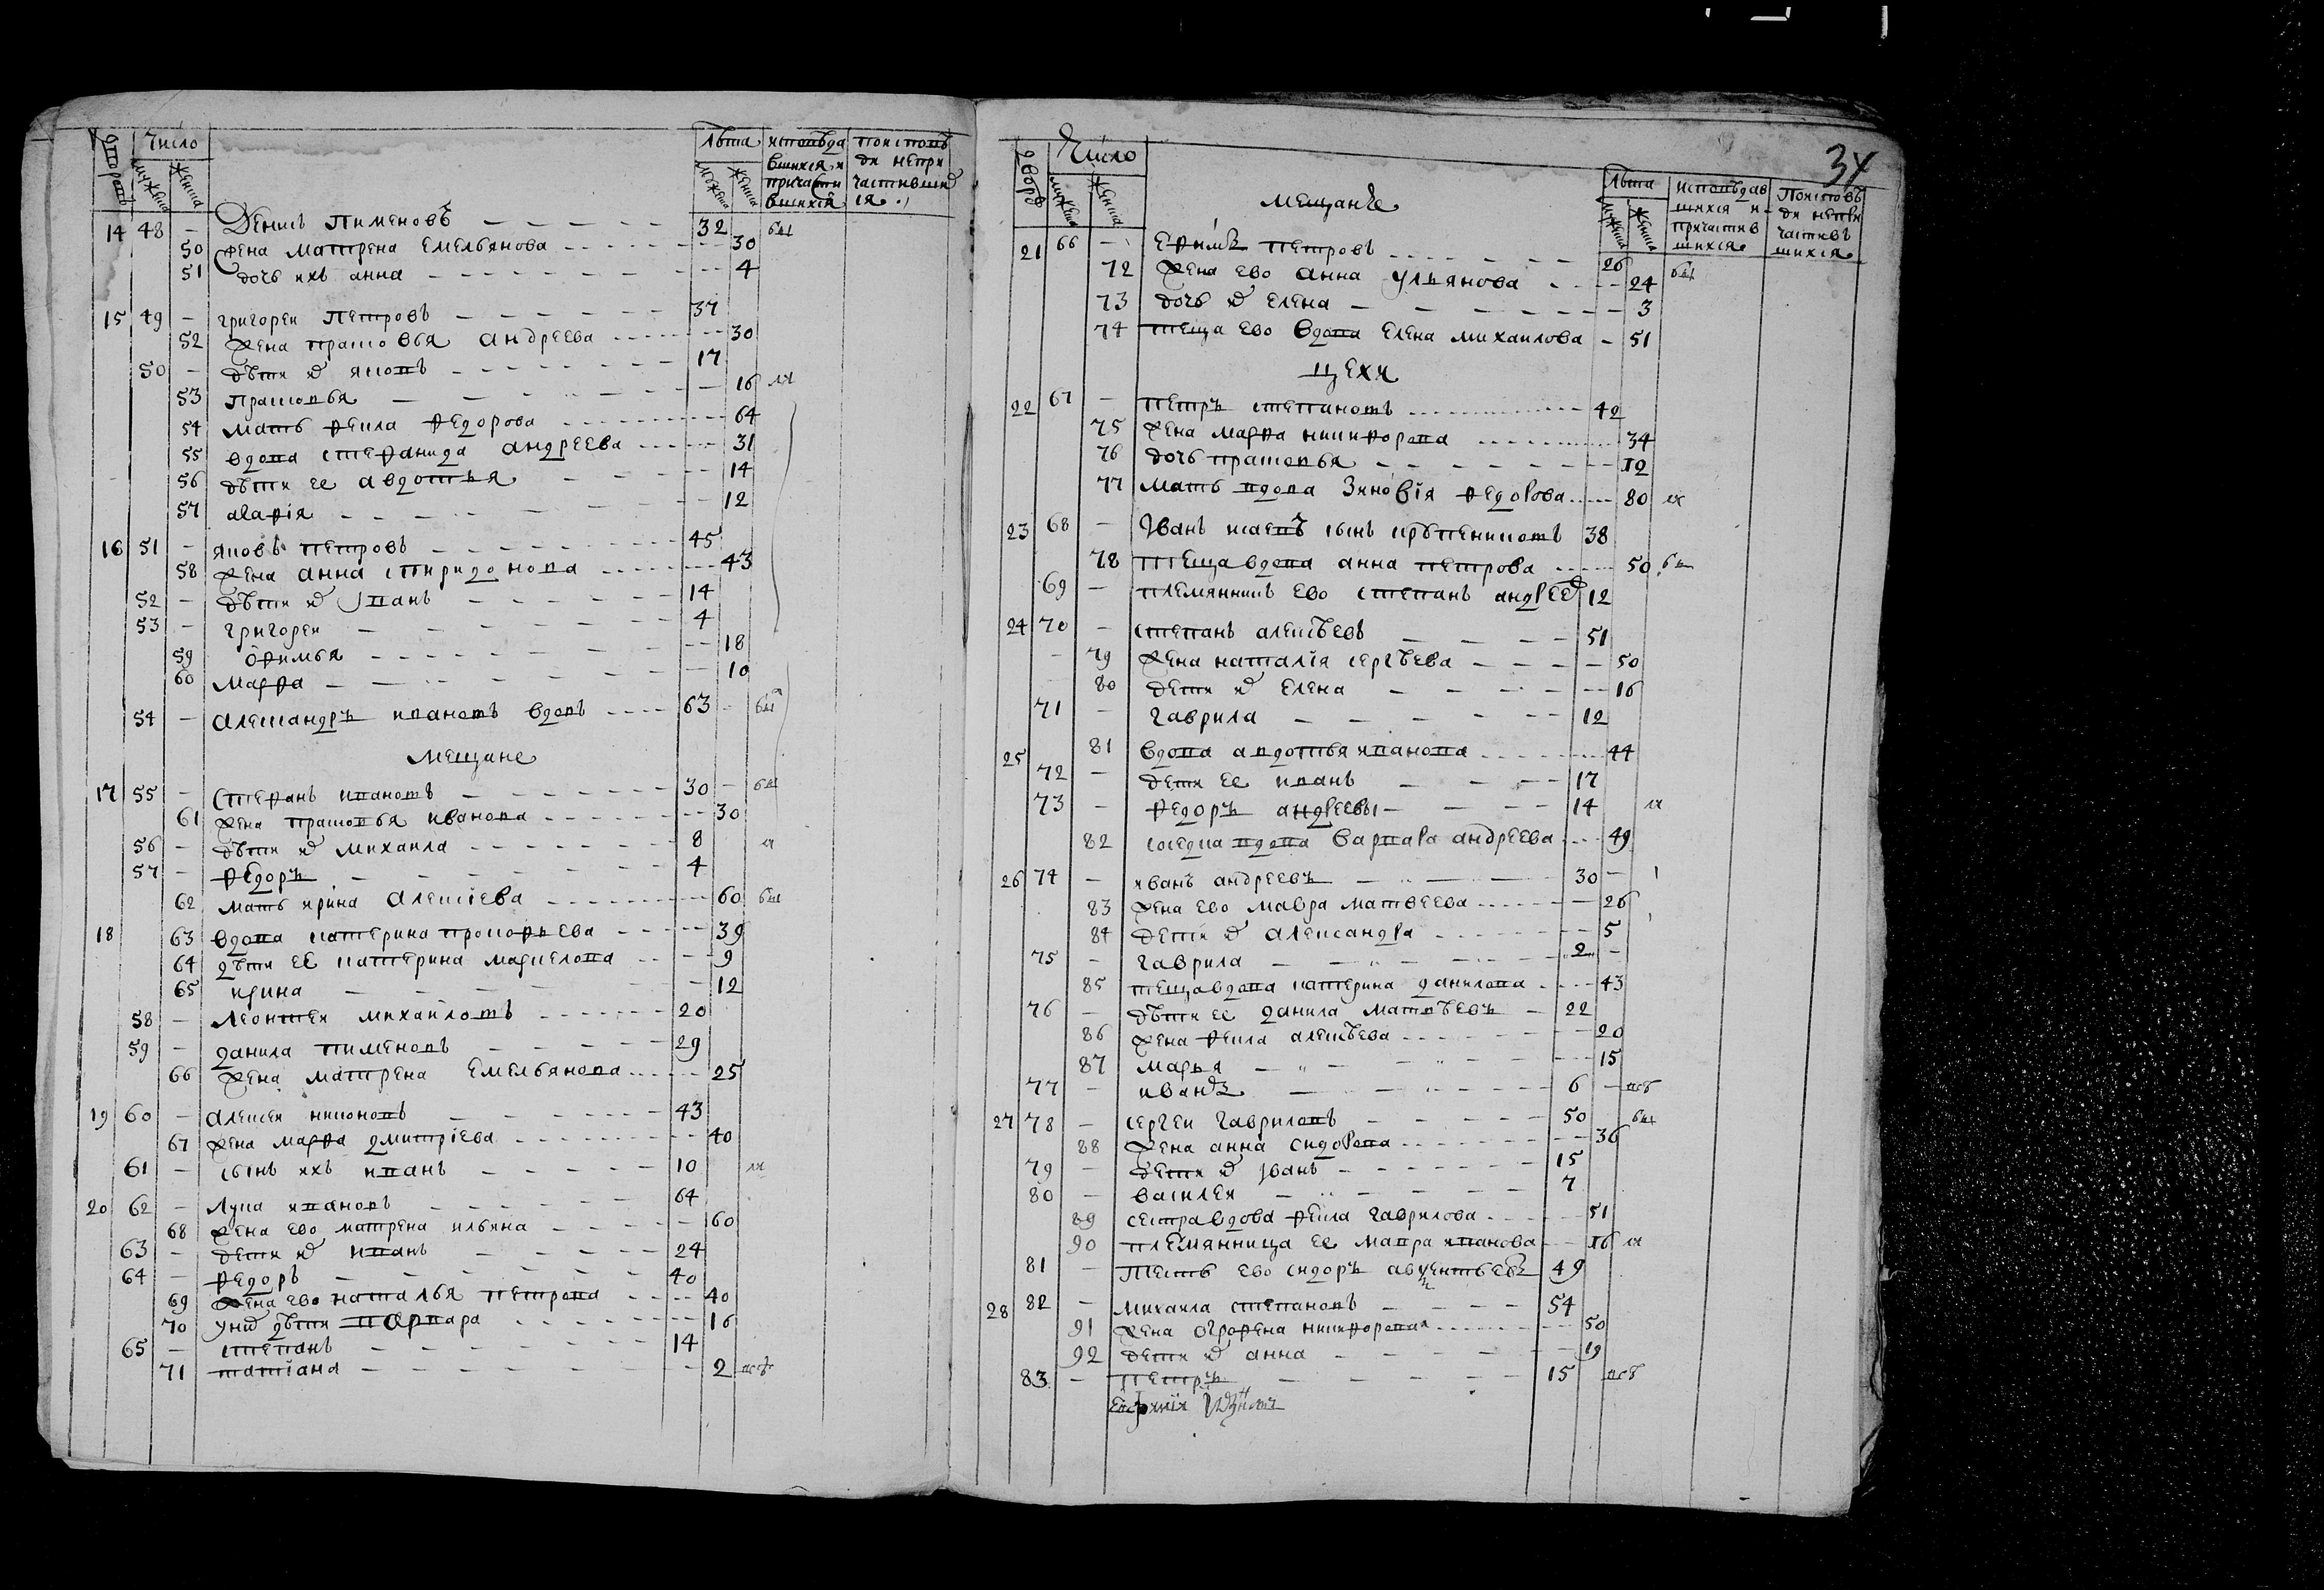 дворовъ Число Лѣта исповѣда вшихся и причасти вшихся по исповѣ ди непри частивших ся
мужеска женска мужеска женска
14 48 - Денисъ Пименовъ 32 был
50 жена матрена Емельянова 30
51 дочь ихъ анна 4
15 49 - григореи Петровъ 37
52 жена прасковья андреева 30
50 - дѣти их яковъ 17
53 прасковья 16 ся
54 мать фекла федорова 64
55 вдова стефанида андреева 31
56 дѣти ее авдотья 14
57 агафія 12
16 51 - яковъ петровъ 45
58 жена анна спиридонова 43
52 - дѣти их Iванъ 14
53 - григореи 4
59 офимья 18
60 марфа 10
54 - александръ ивановъ вдовъ 63 был
мещане
17 55 - стефанъ ивановъ 30 был
61 жена прасковья иванова 30
56 - дѣти их михаила 8 ся
57 - федоръ 4
62 мать ирина алексіева 60 был
18 63 вдова катерина прокофьева 39
64 дѣти ее катерина маркелова 9
65 ирина 12
58 - леонтеи михаиловъ 20
59 - данила пименовъ 29
66 жена матрена Емельянова 25
19 60 - алексеи никоновъ 43
67 жена марфа дмитріева 40
61 - сынъ ихъ иванъ 10 ся
20 62 - лука ивановъ 64
68 жена ево матрена ильина 60
63 - дети их иванъ 24
64 - федоръ 40
69 жена ево наталья петрова 40
70 у них дѣти варвара 16
65 - степанъ 14
71 татіана 2
34
двор Число мещанѣ Лѣта исповѣдав шихся и причастив шихся По исповѣ ди непри частивъ шихся
мужеска женска мужеска женска
21 66 - Ефимъ петровъ 26 был
72 жена ево анна ульянова 24
73 дочь их елена 3
74 теща ево вдова Елена михаилова 51
цехи
22 67 - петръ степановъ 42
75 жена марфа никифорова 34
76 дочь прасковья 12
77 мать вдова Зиновія федорова 80 ся
23 68 - Iванъ исаевъ сынъ 38
78 теща вдова анна петрова 50 был
69 - племянникъ ево степанъ андреев 12
24 70 - степанъ алексѣевъ 51
79 жена наталія сергѣева 50
80 дети их елена 16
71 - гаврила 12
25 81 вдова авдотья иванова 44
72 - дети ее иванъ 17
73 - федоръ андреевы 14 ся
82 соседка вдова варвара андреева 49
26 74 - иванъ андреевъ 30
83 жена ево мавра матвеева 26
84 дети их александра 5
75 - гаврила 2
85 теща вдова катерина данилова 43
76 - дѣти ее данила матвѣевъ 22
86 жена фекла алексѣева 20
87 марья 15
77 - иванъ 6
27 78 - сергеи гавриловъ 50 был
88 жена анна сидорова 36
79 - дети их Iванъ 15
80 - василеи 7
89 сестра вдова фекла гаврилова 51
90 племянница ее мавра иванова 16 ся
81 - тесть ево сидоръ 49
28 82 - михаила степановъ 54
91 жена огрофена никифорова 50
92 дети их анна 19
83 - петръ 15